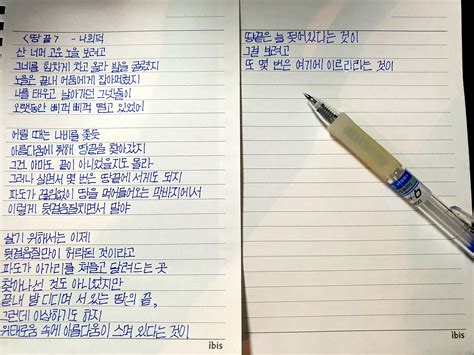 <땅끝> - 나희덕
산 너머 고운 노을 보려고
그네를 힘차게 차고 올라 발을 굴렀지
노을은 끝내 어둠에게 잡아먹혔지
나를 태우고 날아가던 그넷줄이
오랫동안 삐꺽 삐꺽 떨고 있었어
어릴 때는 나비를 좇듯
아름다움에 취해 땅끝을 찾아갔지
그건 아마도 끝이 아니었을지도 몰라
그러나 살면서 몇 번은 땅끝에 서게도 되지
파도가 끊임없이 땅을 먹어들어오는 막바지에서
이렇게 뒷걸음질치면서 말야
살기 위해서는 이제
뒷걸음질만이 허락된 것이라고
파도가 아가리를 쳐들고 달려드는 곳
찾아나선 것도 아니었지만
끝내 발 디디며 서 있는 땅의 끝,
그런데 이상하기도 하지
위태로움 속에 아름다움이 스며 있다는 것이
ibis
땅끝은 늘 젖어있다는 것이
그걸 보려고
또 몇 번은 여기에 이르리라는 것이
ibis